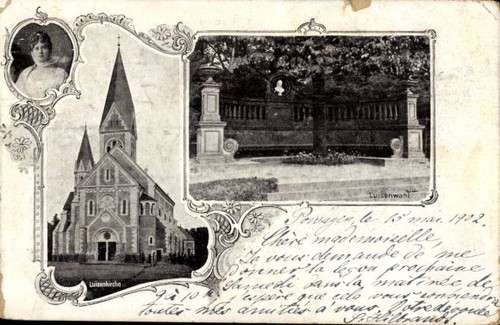 Luisenwahl
Luisenkirche
le 15 mai 1902
Chère mademoiselle,
Je vous demande de me
donner la leçon prochaine
samedi dans la matinée de
9 à 10 h. J'espère que cela vous conviendra
toutes mes amitiés à vous